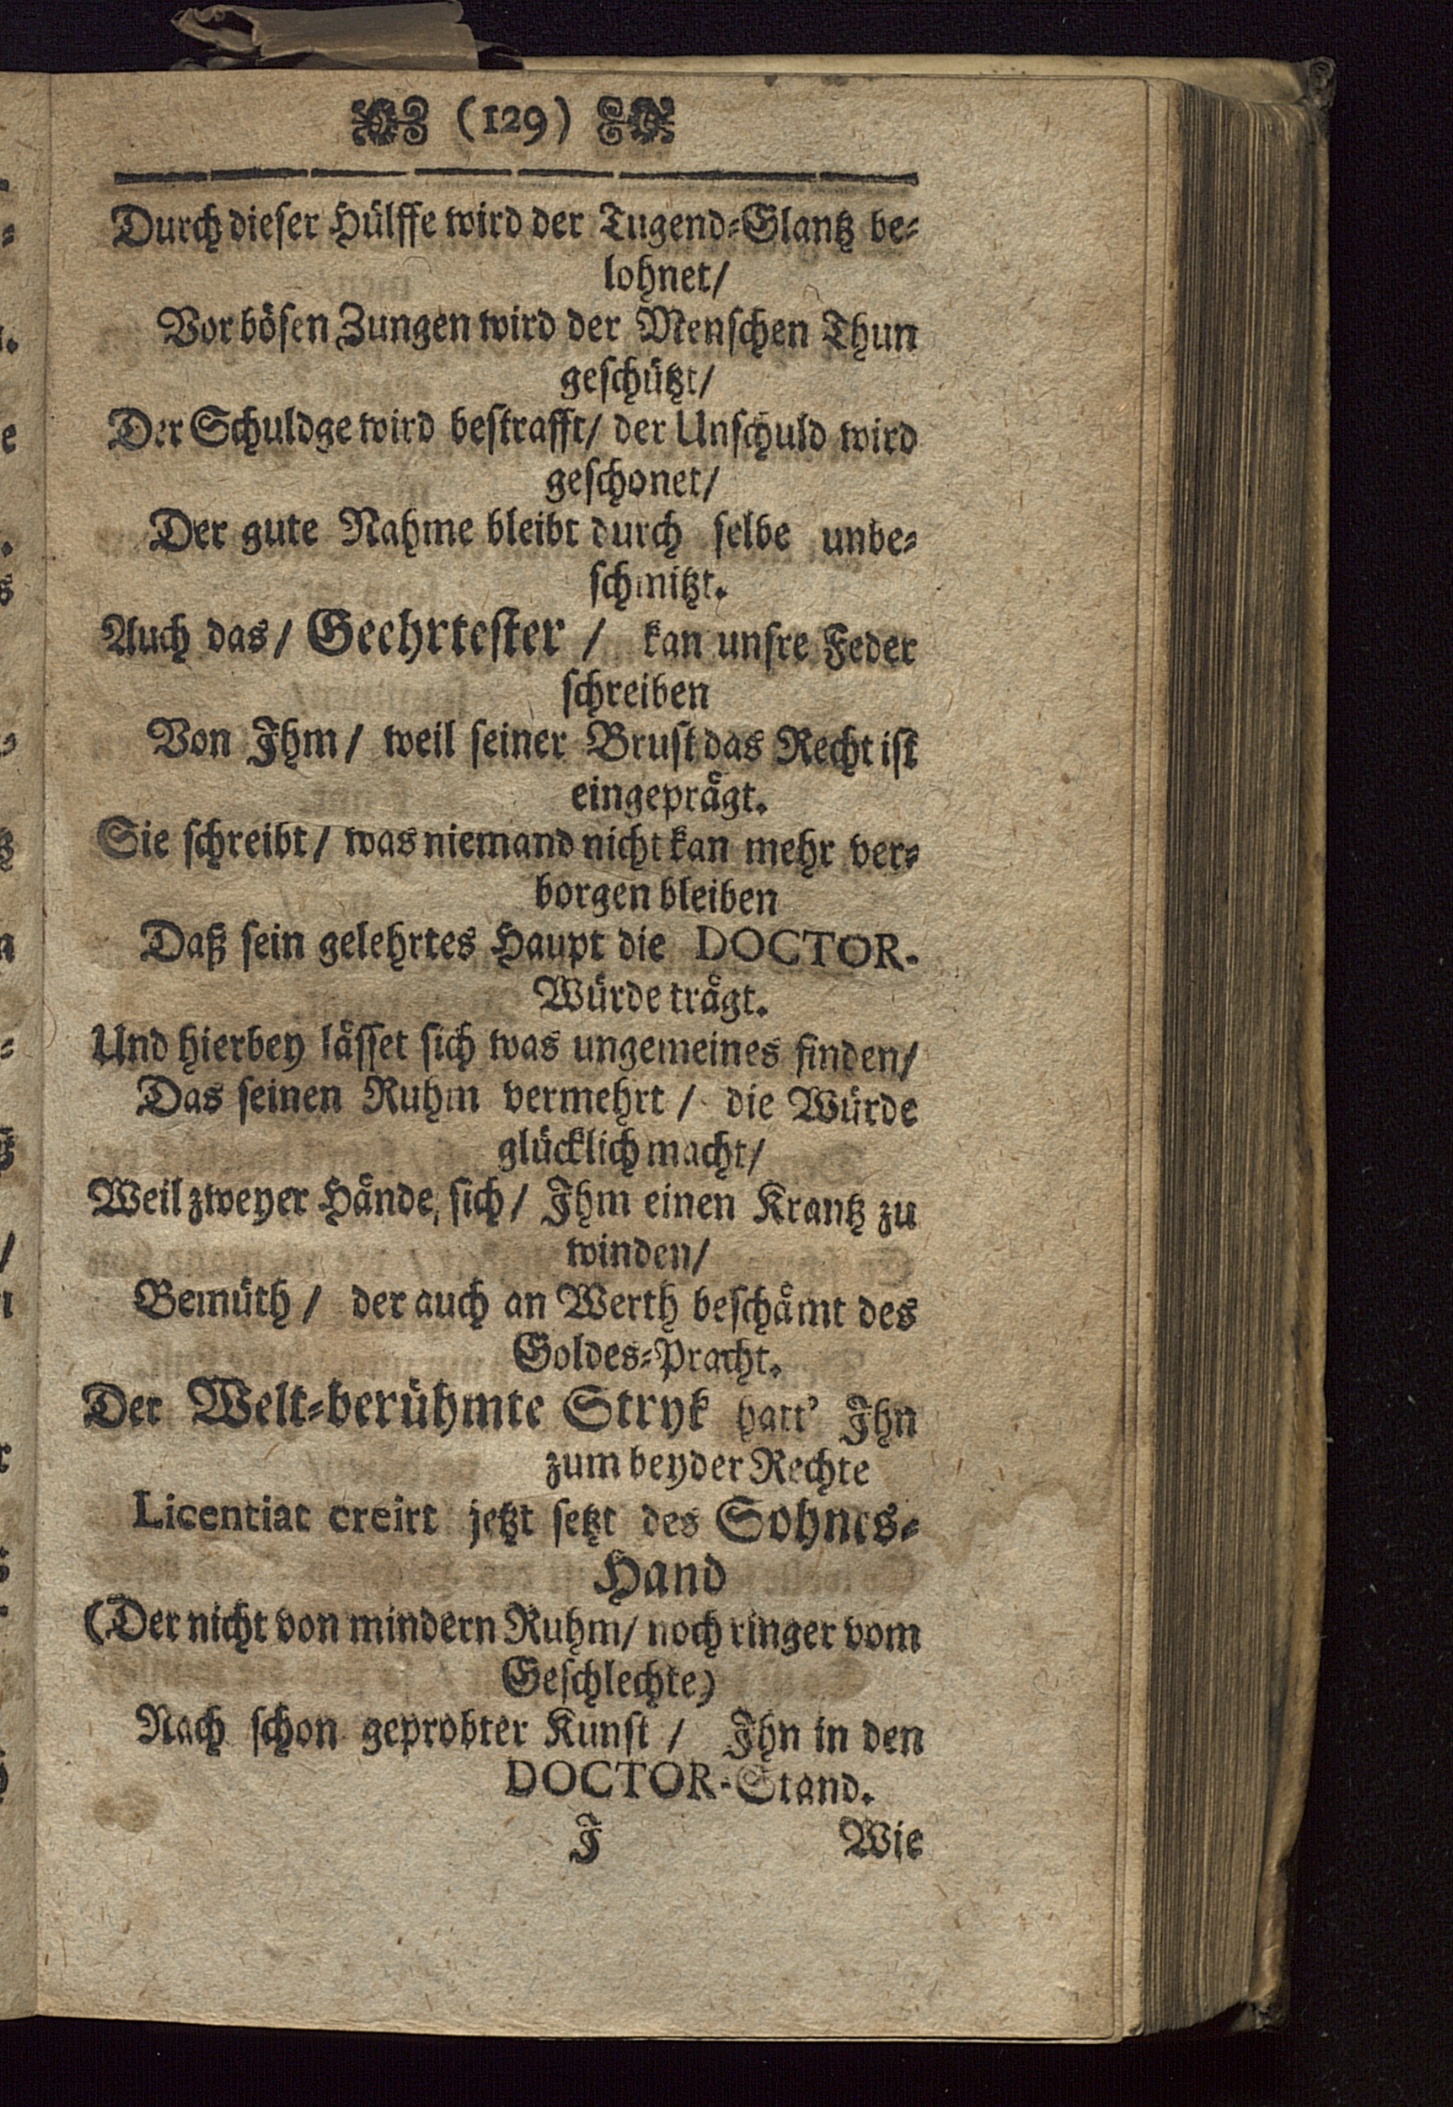 (129)
Durch dieser Hülffe wird der Tugend-Glantz be-
lohnet/
Vor bösen Zungen wird der Menschen Thun
geschützt/
Der Schuldge wird bestrafft/ der Unschuld wird
geschonet/
Der gute Nahme bleibt durch selbe unbe-
schmitzt.
Auch das/ Geehrtester / kan unsre Feder
schreiben
Von Ihm/ weil seiner Brust das Recht ist
eingeprägt.
Sie schreibt/ was niemand nicht kan mehr ver-
borgen bleiben
Daß sein gelehrtes Haupt die DOCTOR-
Würde trägt.
Und hierbey lässet sich was ungemeines finden/
Das seinen Ruhm vermehrt / die Würde
glücklich macht/
Weil zweyer Hände, sich/ Ihm einen Krantz zu
winden/
Bemüth / der auch an Werth beschämt des
Goldes-Pracht.
Der Welt-berühmte Stryk hatt' Ihn
zum beyder Rechte
Licentiat creirt jetzt setzt des Sohnes-
Hand
(Der nicht von mindern Ruhm/ noch ringer vom
Geschlechte)
Nach schon geprobter Kunst / Ihn in den
DOCTOR-Stand.
J Wie